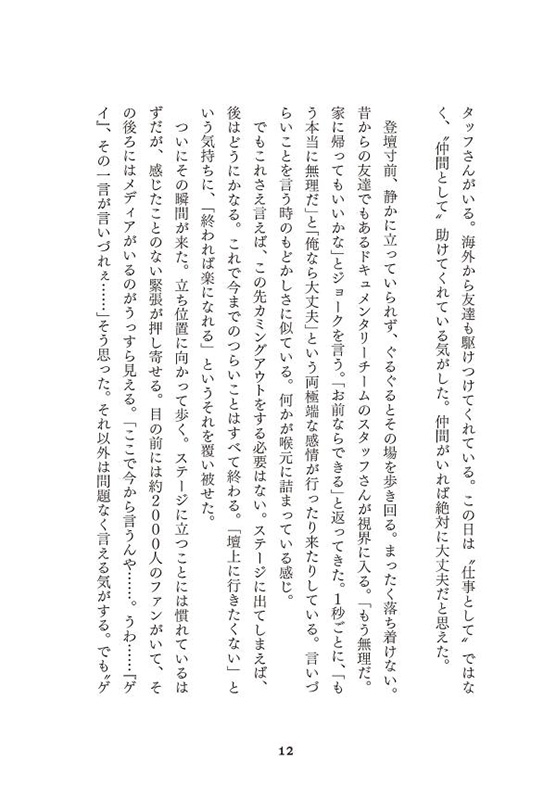 タッフさんがいる。海外から友達も駆けつけてくれている。この日は〝仕事として〟ではな
く、〝仲間として〟助けてくれている気がした。仲間がいれば絶対に大丈夫だと思えた。
登壇寸前、静かに立っていられず、ぐるぐるとその場を歩き回る。まったく落ち着けない。
昔からの友達でもあるドキュメンタリーチームのスタッフさんが視界に入る。「もう無理だ。
家に帰ってもいいかな」とジョークを言う。「お前ならできる」と返ってきた。1秒ごとに、「も
う本当に無理だ」と「俺なら大丈夫」という両極端な感情が行ったり来たりしている。言いづ
らいことを言う時のもどかしさに似ている。何かが喉元に詰まっている感じ。
でもこれさえ言えば、この先カミングアウトをする必要はない。ステージに出てしまえば、
後はどうにかなる。これで今までのつらいことはすべて終わる。「壇上に行きたくない」と
いう気持ちに、「終われば楽になれる」というそれを覆い被せた。
ついにその瞬間が来た。立ち位置に向かって歩く。ステージに立つことには慣れているは
ずだが、感じたことのない緊張が押し寄せる。目の前には約2000人のファンがいて、そ
の後ろにはメディアがいるのがうっすら見える。「ここで今から言うんや……。うわ……『ゲ
イ』、その一言が言いづれぇ……」そう思った。それ以外は問題なく言える気がする。でも〝ゲ
12